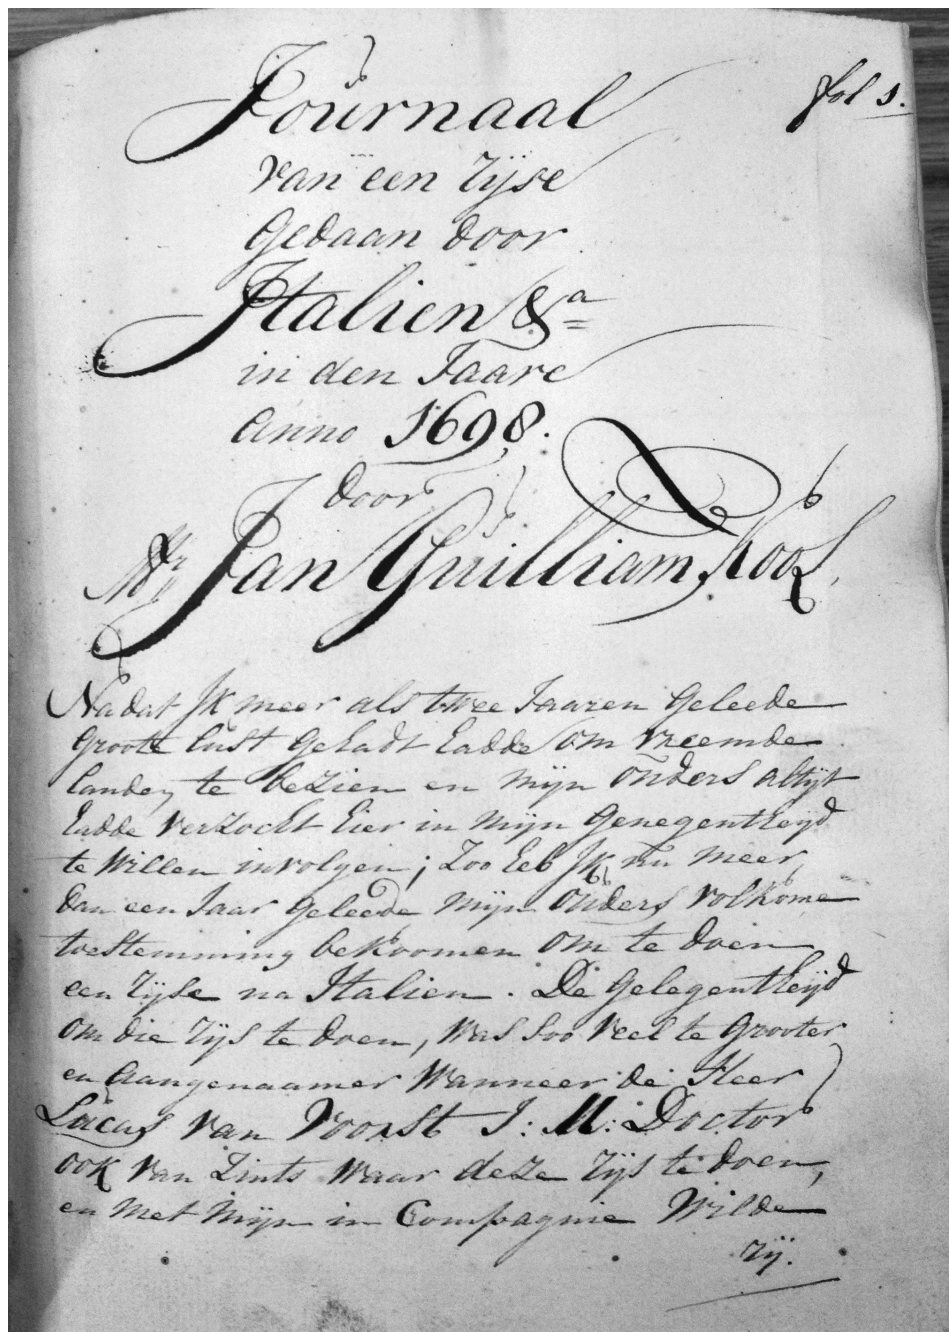 fol 1.
Journaal
van een rijse
Gedaan door
Italien &a
in den Jaare
Anno 1698.
door
Mr Jan Guilliam Kool,
Nadat Jk meer als twee Jaaren Geleede
Groote lust gehadt hadde om vreemde
landen te bezien en mijn ouders altijt
hadde verzocht hier in mijn Genegentheijd
te willen involgen; Zoo heb Jk nu meer
dan een Jaar Geleede mijn ouders volkome
toestemming bekoomen om te doen
een rijse na Italien. De Gelegentheijd
om die rijs te doen, was soo veel te Grooter
en aangenaamer wanneer de Heer
Lucas van Voorst J: M: Doctor
ook van Zints waar deze rijs te doen,
en met mijn in Compagnie Wilde
rij.